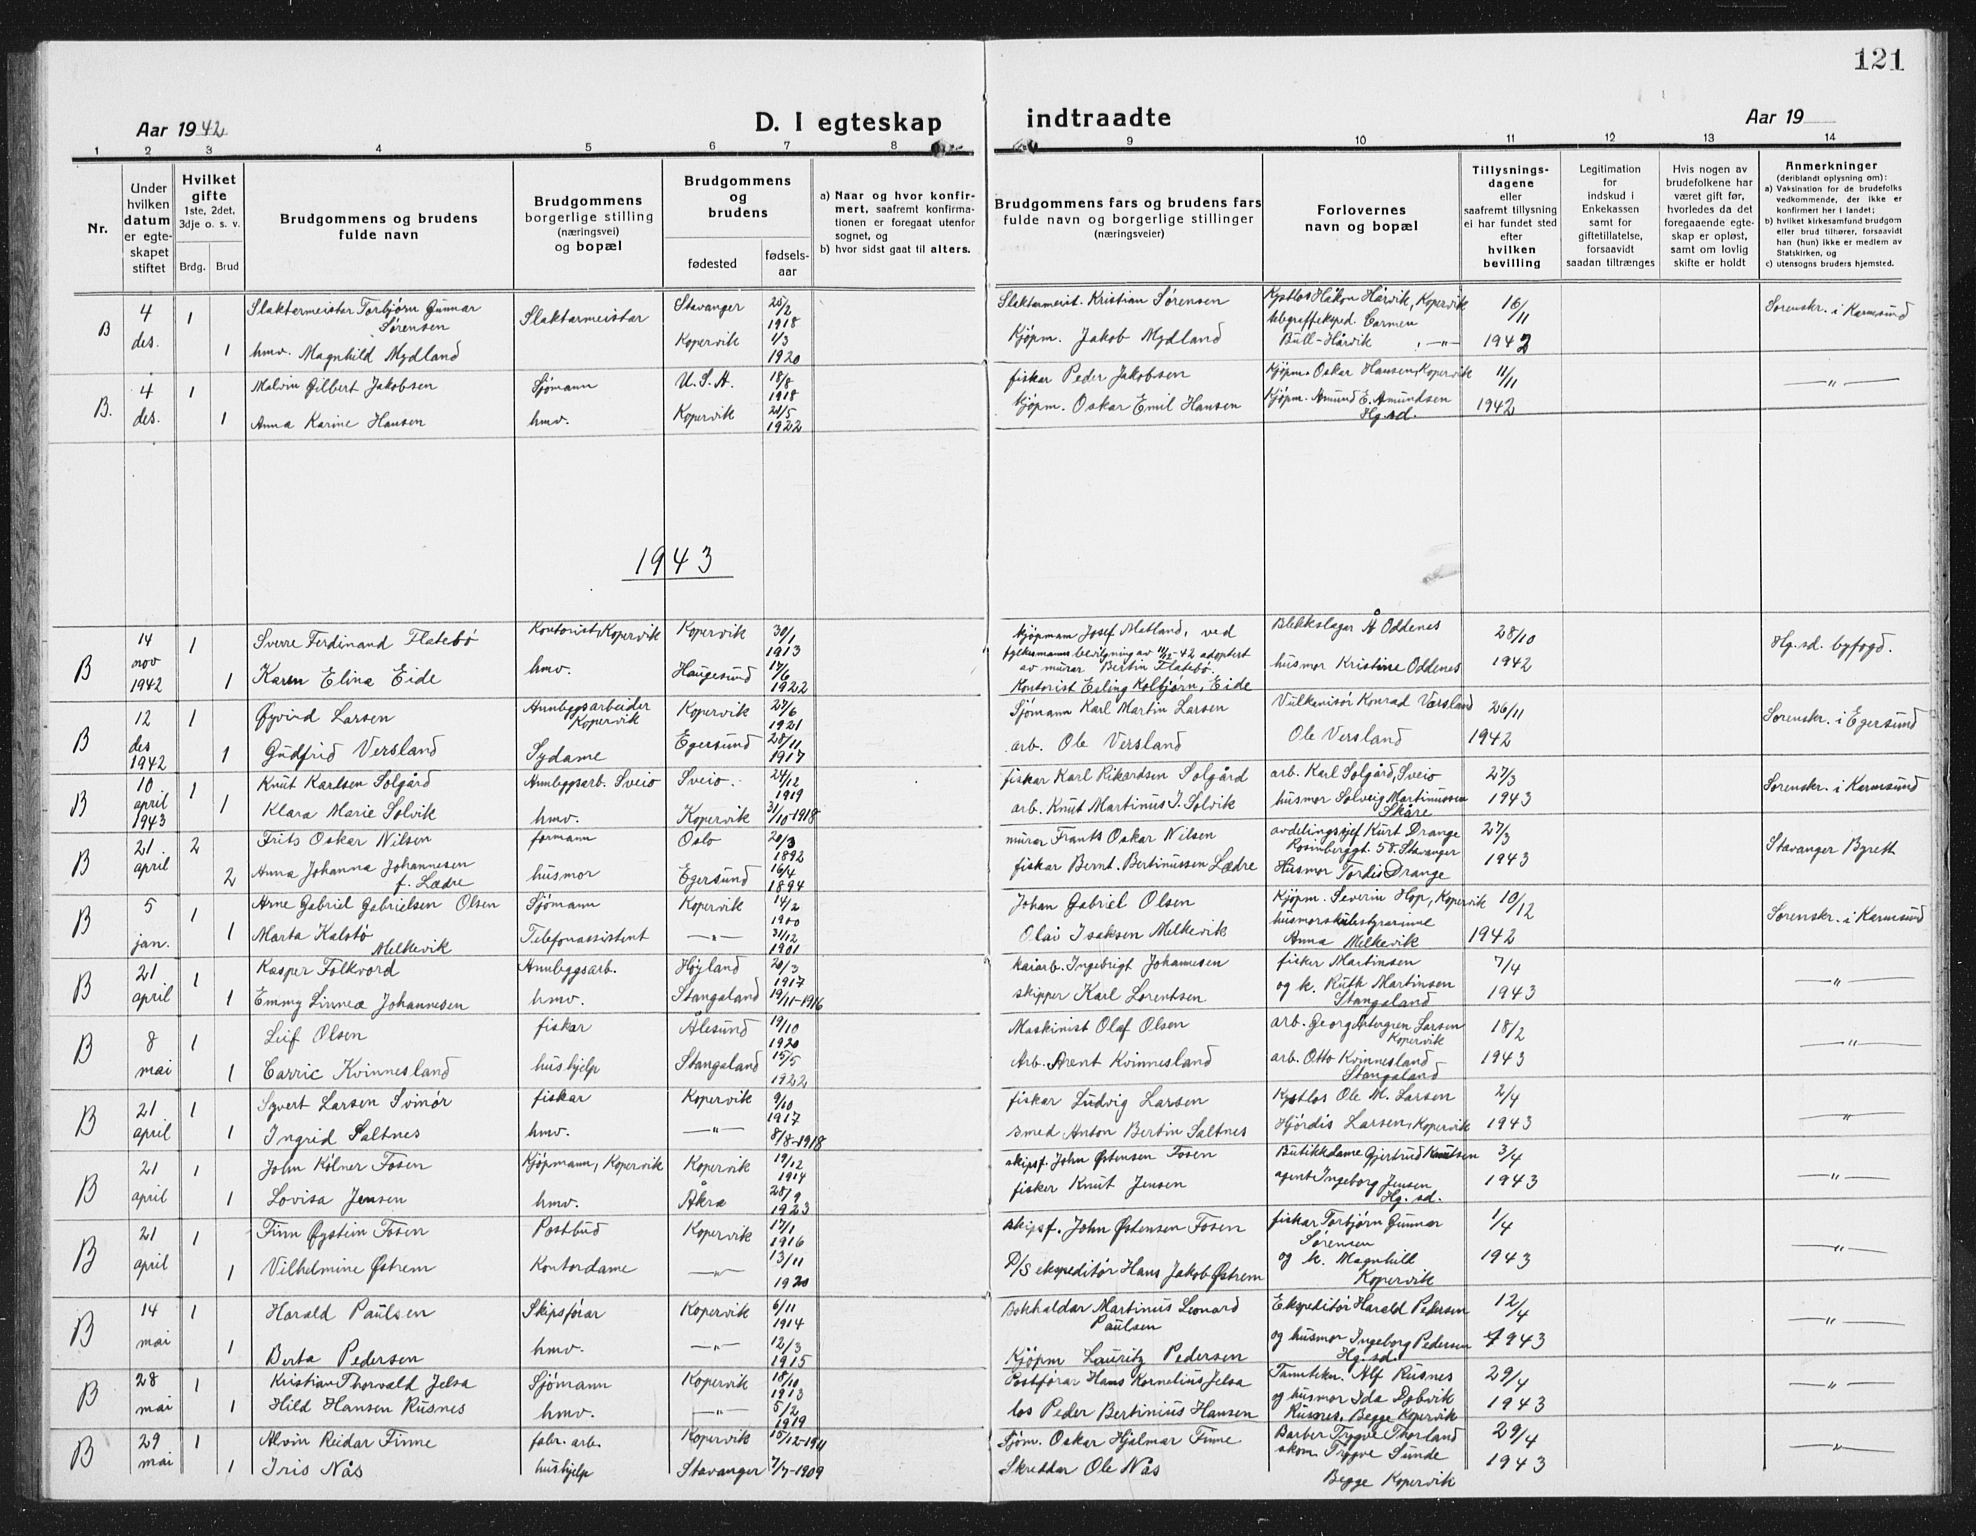 121
Aar 1942
D. I egteskap
indtraadte
Aar 19
1 2 3 4 5 6 7 8 9 10 11 12 13 14
Nr.
Under hvilken datum er egteskapet stiftet
Hvilket gifte
1ste, 2det, 3dje o. s. v.
Brdg. Brud
Brudgommens og brudens fulde navn
Brudgommens borgerlige stilling (næringsvei) og bopæl
Brudgommens og brudens
fødested
fødselsaar
a) Naar og hvor konfirmert, saafremt konfirmationen er foregaat utenfor sognet, og
b) hvor sidst gaat til alters.
Brudgommens fars og brudens fars fulde navn og borgerlige stillinger (næringsveier)
Forlovernes navn og bopæl
Tillysningsdagene eller saafremt tillysning ei har fundet sted efter hvilken bevilling
Legitimation for indskud i Enkekassen samt for giftetillatelse, forsaavidt saadan tiltrænges
Hvis nogen av brudefolkene har været gift før, hvorledes da det foregaaende egteskap er opløst, samt om lovlig skifte er holdt
Anmerkninger (deriblandt oplysning om):
a) Vaksination for de brudefolks vedkommende, der ikke er konfirmert her i landet;
b) hvilket kirkesamfund brudgom eller brud tilhører, forsaavidt han (hun) ikke er medlem av Statskirken, og
c) utensogns bruders hjemsted.
B 4 des. 1 Slaktermeister Torbjørn Gunnar Sørensen Slaktarmeistar Stavanger 25/2 1918 Slaktermeist. Kristian Sørensen Kystlos Håkon Hårvik, Kopervik 16/11 Sorenskr. i Karmsund
1 hmv. Magnhild Mydland Kopervik 1/3 1920 Kjøpm. Jakob Mydland telegrafeksped. Carmen Bull-Hårvik -"- 1942
B. 4 des. 1 Malvin Gilbert Jakobsen Sjømann U.S.A. 18/8 1918 fiskar Peder Jakobsen Kjøpm. Oskar Hansen, Kopervik 11/11 -"-
1 Anna Karine Hansen hmv. Kopervik 21/5 1922 kjøpm. Oskar Emil Hansen Kjøpm. Amund E. Amundsen Hg.sd. 1942
1943
B 14 nov 1942 1 Sverre Ferdinand Flatebø Kontorist, Kopervik Kopervik 30/1 1913 kjøpmann Josef Matland, ved fylkesmanns bevilgning av 11/12-42 adoptert av murar Bertin Flatebø. Blikkslagar Å Oddenes 28/10 Hg.sd. byfogd.
1 Karen Elina Eide hmv. Haugesund 17/6 1922 Kontorist Esling Kolbjørn, Eide husmor Kristine Oddenes 1942
B 12 des 1942 1 Øyvind Larsen Annleggsarbeider Kopervik Kopervik 27/6 1921 Sjømann Karl Martin Larsen Vulkenisør Konrad Versland 26/11 Sorenskr. i Egersund
1 Gudfrid Versland Sydame Egersund 28/11 1917 arb. Ole Versland Ole Versland 1942
B 10 april 1943 1 Knut Karlsen Solgård Annleggsarb. Sveio Sveio. 24/12 1919 fiskar Karl Rikardsen Solgård arb. Karl Solgård, Sveio 27/3 Sorenskr. i Karmsund
1 Klara Marie Solvik hmv. Kopervik 31/10-1918 arb. Knut Martinus J. Solvik husmor Solveig Martinussen Skåre 1943
B 21. april 2 Frits Oskar Nilsen formann Oslo 20/3 1892 murar Frants Oskar Nilsen avdelingssjef Kurt Drange Rosenberggt. 58. Stavanger 27/3 Stavanger Byrett
2 Anna Johanna Johannesen f. Lædre husmor Egersund 16/4 1894 fiskar Bernt. Bertinussen Lædre Husmor Tordis Drange 1943
B 5 jan. 1 Arne Gabriel Gabrielsen Olsen Sjømann Kopervik 14/2 1900 Johan Gabriel Olsen Kjøpm. Severin Hop, Kopervik 10/12 Sorenskr. i Karmsund
1 Marta Kalstø Melkevik Telefonassistent -"- 31/12 1901 Olai Isaksen Melkevik husmorskulestyrarinne Anna Melkevik 1942
B 21 april 1 Kasper Folkvord Annleggsarb. Høyland 20/3 1917 kaiarb. Ingebrigt Johannesen fisker Martinsen 7/4 -"-
1 Emmy Linnea Johannesen hmv. Stangaland 19/11-1916 skipper Karl Lorentsen og k. Ruth Martinsen Stangaland 1943
B 8 mai 1 Leif Olsen fiskar Ålesund 19/10 1920 Maskinist Olaf Olsen arb. Georg Larsen Kopervik 18/2 -"-
1 Carrie Kvinnesland hushjelp Stangaland 15/5 1922 Arb. Arent Kvinnesland arb. Otto Kvinnesland Stangaland 1943
B 21 april 1 Syvert Larsen Svinør fiskar Kopervik 9/10 1917 fiskar Ludvig Larsen Kystlos Ole M. Larsen 2/4 -"-
1 Ingrid Saltnes hmv. -"- 8/8-1918 smed Anton Bertin Saltnes Hjørdis Larsen, Kopervik 1943
B 21 april 1 John Kølner Fosen Kjøpmann, Kopervik Kopervik 19/12 1914 skipsf. John Østensen Fosen Butikkdame Gjertrud Knutsen 3/4 -"-
1 Lovisa Jensen hmv. Åkra 28/9 1923 fisker Knut Jensen agent Ingeborg Jensen Hg.sd. 1943
B 21 april 1 Finn Øystein Fosen Postbud Kopervik 17/1 1916 skipsf. John Østensen Fosen fiskar Torbjørn Gunnar Sørensen 1/4 -"-
1 Vilhelmine Østrem Kontordame -"- 13/11 1920 D/S ekspeditør Hans Jakob Østrem og k. Magnhild Kopervik 1943
B 14 mai 1 Harald Paulsen Skipsførar Kopervik 6/11 1914 Bokhaldar Martinus Leonard Paulsen Ekspeditør Harald Pedersen 12/4 -"-
1 Berta Pedersen hmv. -"- 12/3 1915 Kjøpm Lauritz Pedersen og husmor Ingeborg Pedersen Hg.sd. 1943
B 28 mai 1 Kristian Thorvald Jelsa Sjømann Kopervik 18/10 1913 Postførar Hans Kornelius Jelsa Tanntekn. Alf Rusnes 29/4 -"-
1 Hild Hansen Rusnes hmv. -"- 5/2 1919 los Peder Bertinius Hansen og husmor Ida Dybvik Rusnes, Begge Kopervik 1943
B 29 mai 1 Alvin Reidar Finne fabr. arb. Kopervik 15/12-1911 Sjøm. Oskar Hjalmar Finne Barber Trygve Thorland 29/4 -"-
1 Iris Nås hushjelp Stavanger 7/7-1909 Skreddar Ole Nås skom. Trygve Sunde Begge Kopervik 1943